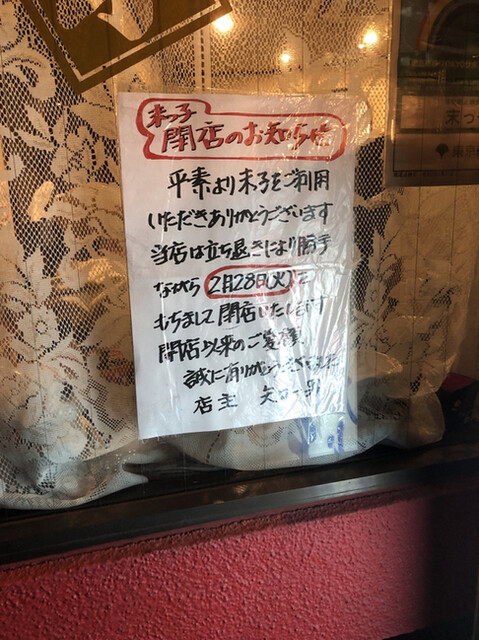 末っ子
閉店のお知らせ
平素より末子をご利用
いただきありがとうございます
当店は立ち退きにより勝手
ながら 2月28日(火)に
もちまして閉店いたします
開店以来のご愛顧
誠にありがとうございました
店主
末っ